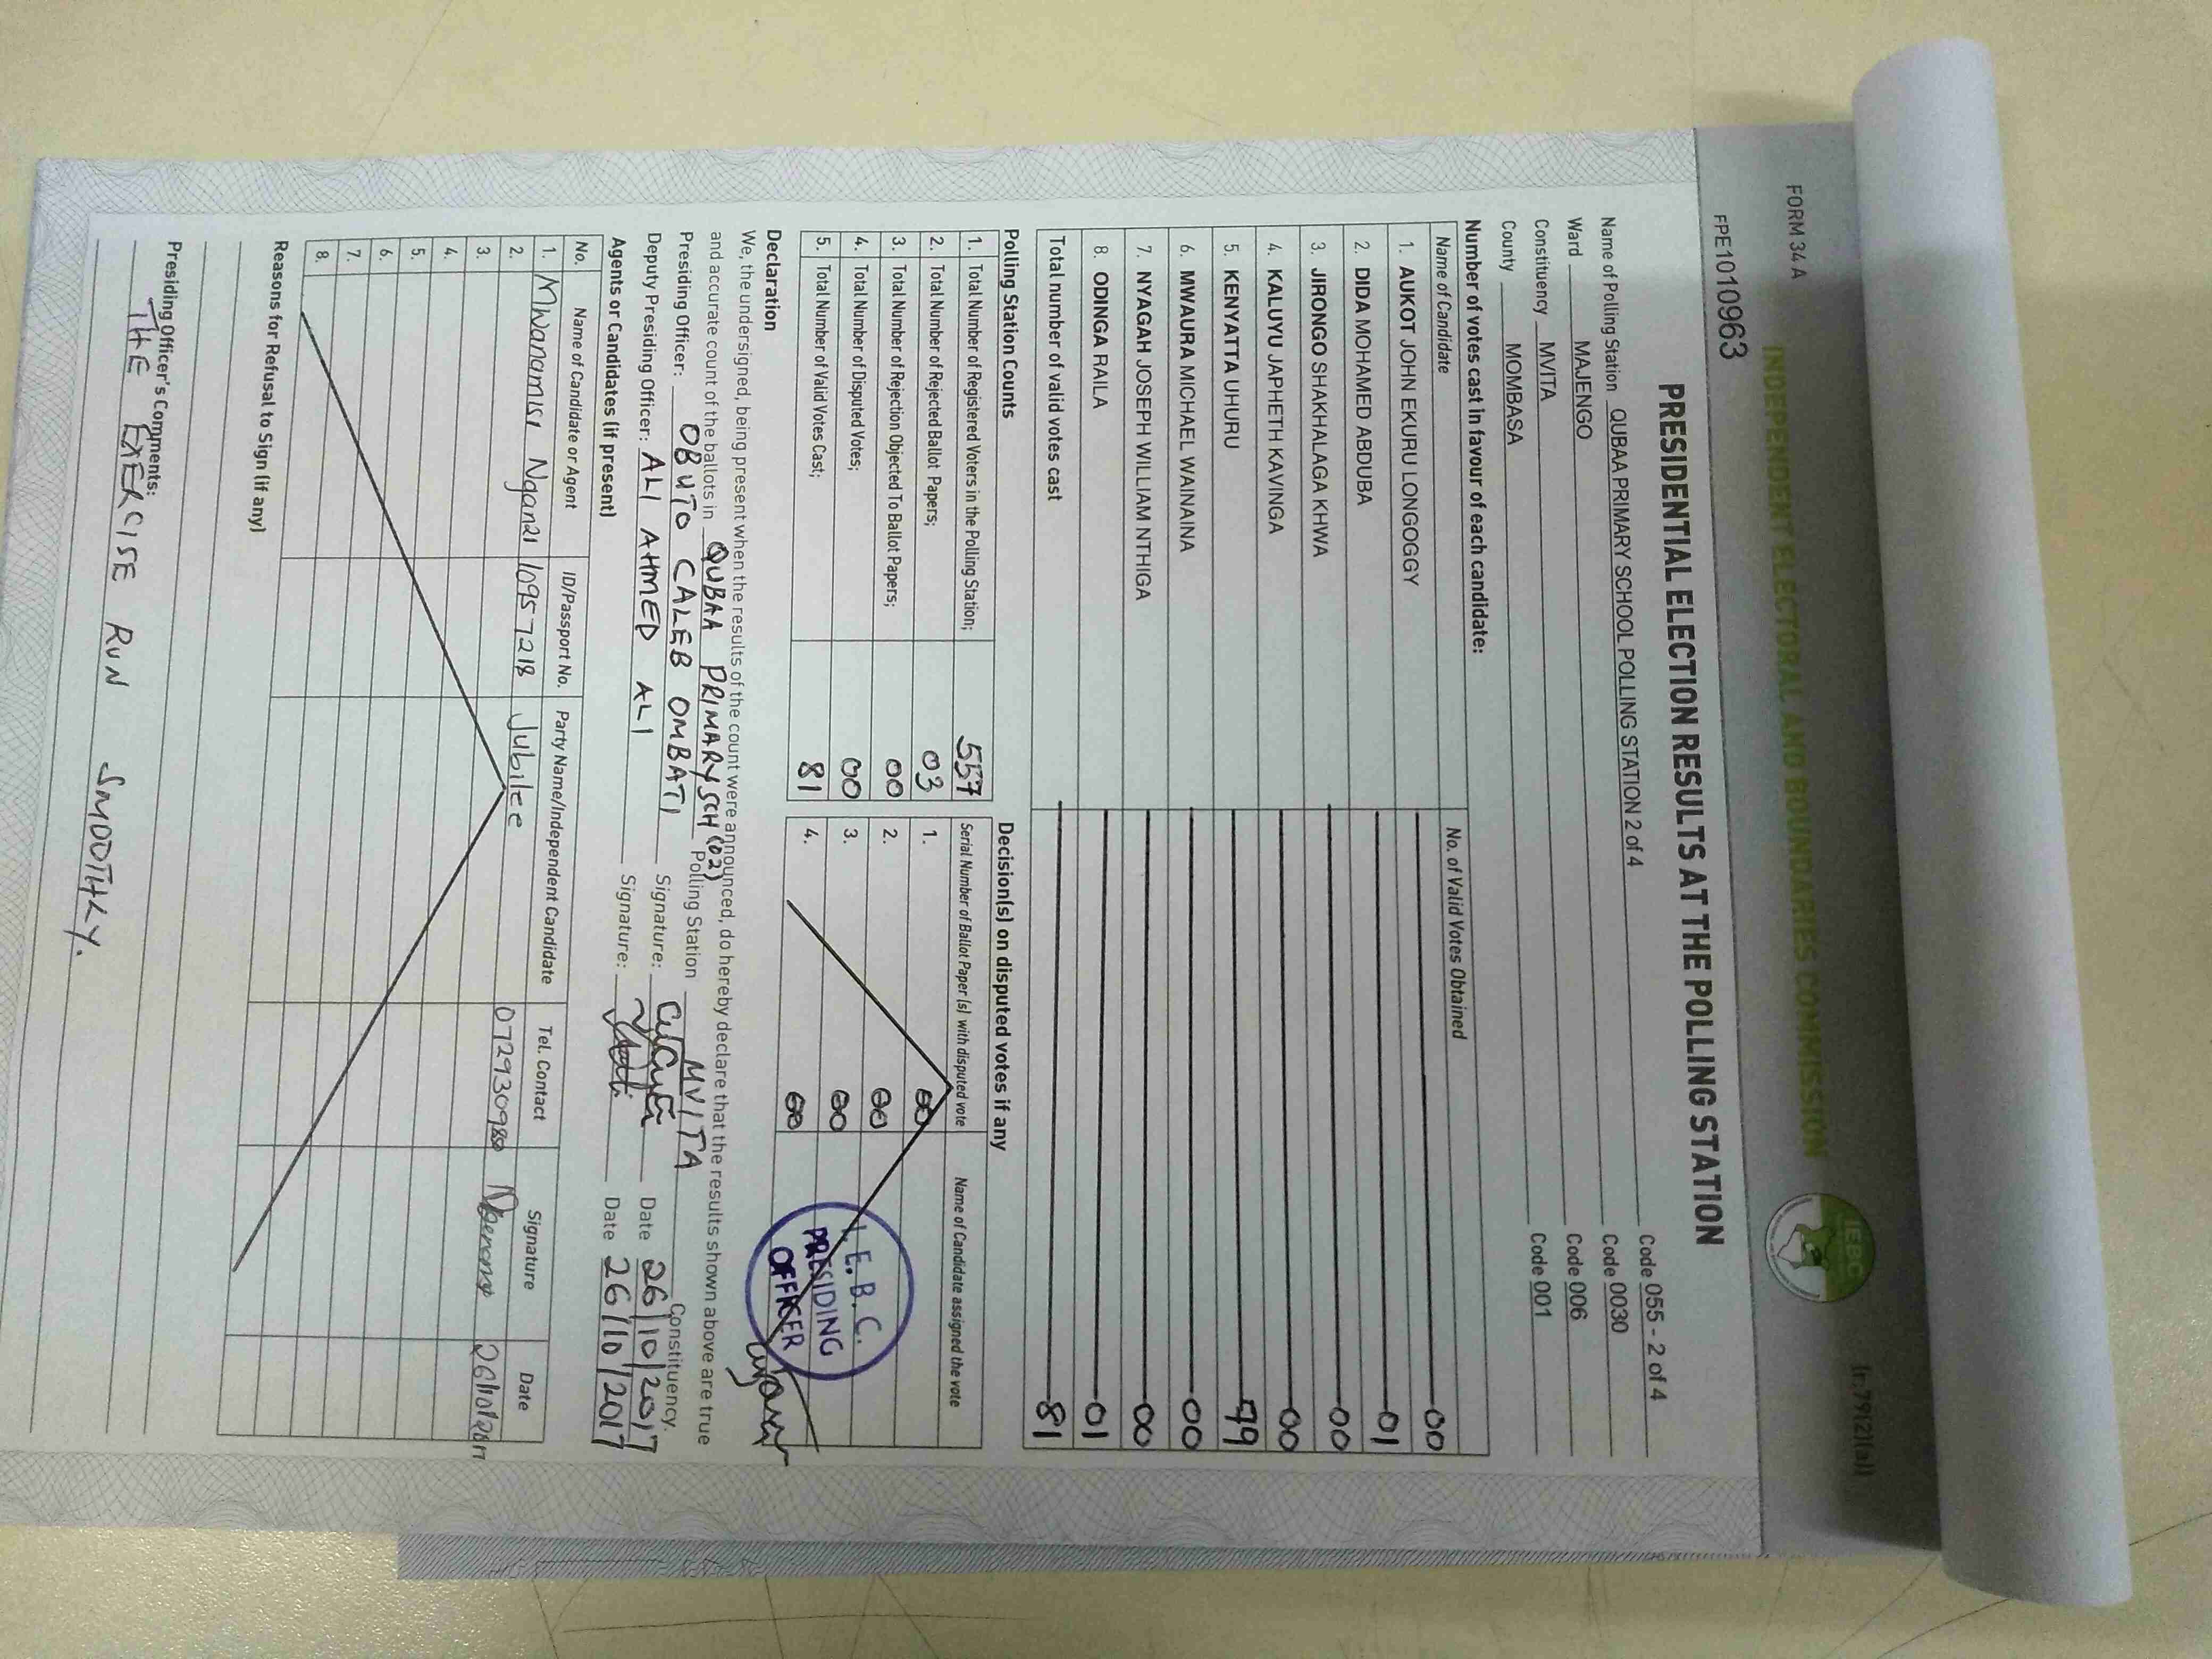 FORM 34 A
(r. 79(2)(a))
INDEPENDENT ELECTORAL AND BOUNDARIES COMMISSION
IEBC
FPE1010963
PRESIDENTIAL ELECTION RESULTS AT THE POLLING STATION
Name of Polling Station QUBAA PRIMARY SCHOOL POLLING STATION 2 of 4 Code 055 - 2 of 4
Ward MAJENGO Code 0030
Constituency MVITA Code 006
County MOMBASA Code 001
Number of votes cast in favour of each candidate:
Name of Candidate No. of Valid Votes Obtained
1. AUKOT JOHN EKURU LONGOGGY 00
2. DIDA MOHAMED ABDUBA 01
3. JIRONGO SHAKHALAGA KHWA 00
4. KALUYU JAPHETH KAVINGA 00
5. KENYATTA UHURU
6. MWAURA MICHAEL WAINAINA 00
7. NYAGAH JOSEPH WILLIAM NTHIGA 00
8. ODINGA RAILA 01
Total number of valid votes cast 81
Polling Station Counts
1. Total Number of Registered Voters in the Polling Station; 557
2. Total Number of Rejected Ballot Papers; 03
3. Total Number of Rejection Objected To Ballot Papers; 00
4. Total Number of Disputed Votes; 00
5. Total Number of Valid Votes Cast; 81
Decision(s) on disputed votes if any
Serial Number of Ballot Paper (s) with disputed vote Name of Candidate assigned the vote
1. 00
2. 00
3. 00
4. 00
I.E.B.C.
PRESIDING
OFFICER
Declaration
We, the undersigned, being present when the results of the count were announced, do hereby declare that the results shown above are true
and accurate count of the ballots in QUBAA PRIMARY SCH (02) Polling Station MVITA Constituency.
Presiding Officer: OBUTO CALEB OMBATI Signature: Date 26/10/2017
Deputy Presiding Officer: ALI AHMED ALI Signature: Date 26/10/2017
Agents or Candidates (if present)
No. Name of Candidate or Agent ID/Passport No. Party Name/Independent Candidate Tel. Contact Signature Date
1. Mwanamisi Nganzi 10957218 Jubilee 0729930980 26/10/2017
2.
3.
4.
5.
6.
7.
8.
Reasons for Refusal to Sign (if any)
Presiding Officer's Comments:
THE EXERCISE RUN SMOOTHLY.